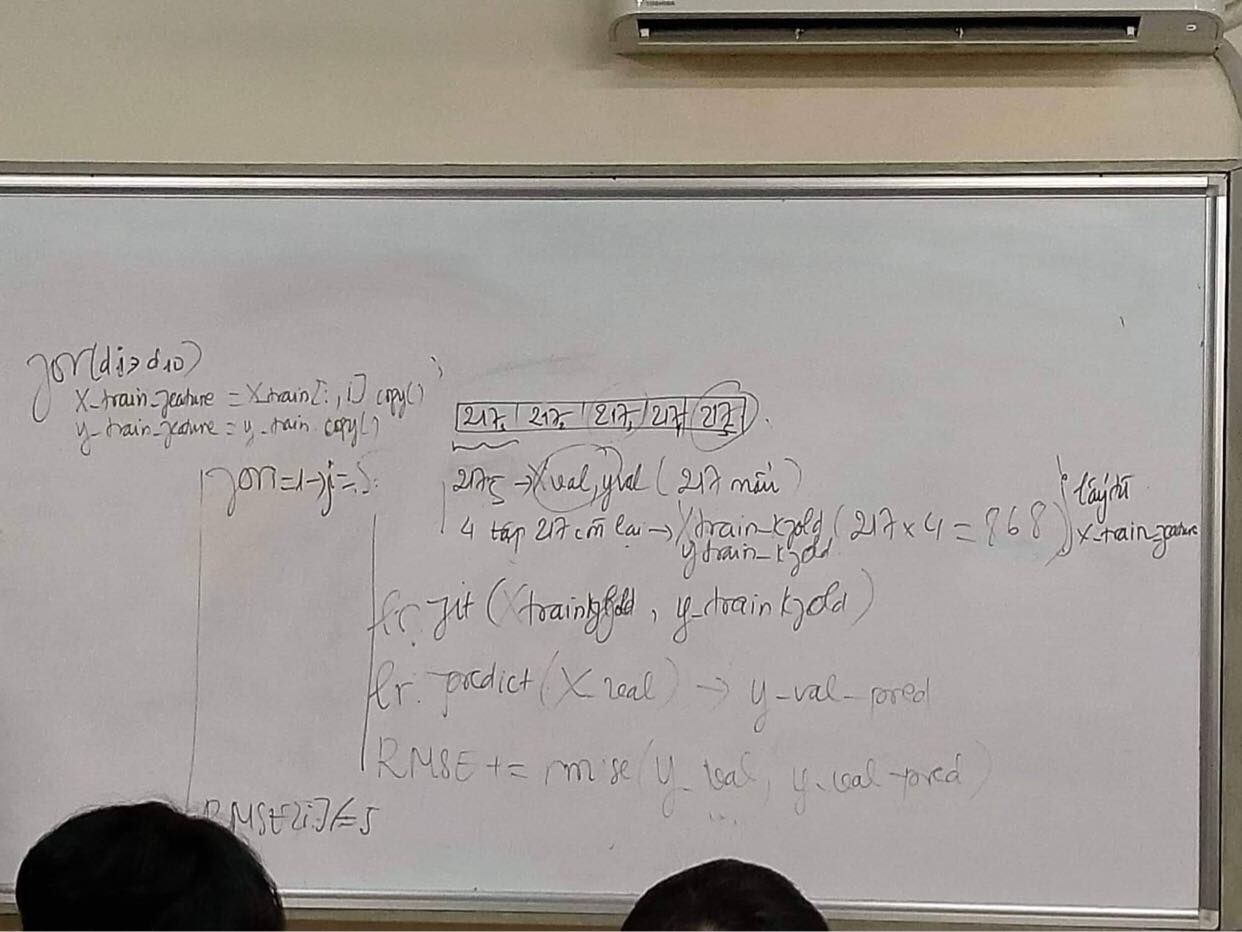 TOSHIBA
for(d1→d10)
X_train_feature = X_train[:, i] copy()
y_train_feature = y_train. copy()
217. 217. 217. 217. 217
for j=1→j=5:
217 → Xval, yval (217 mẫu)
4 tập 217 còn lại → Xtrain_kfold (217 x 4 = 868)
ytrain_kfold
lấy từ
X_train_feature
lr. fit (Xtrainkfold, y_trainkfold)
lr. predict (Xval) → y_val_pred
RMSE += rmse(y_val, y_val_pred)
RMSE[i] /= 5